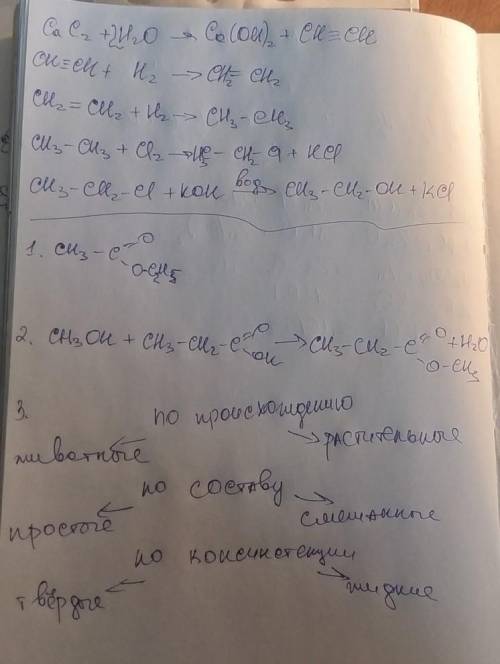 CaC₂ + 2H₂O → Ca(OH)₂ + CH≡CH
CH≡CH + H₂ → CH₂=CH₂
CH₂=CH₂ + H₂ → CH₃-CH₃
CH₃-CH₃ + Cl₂ → H₃C-CH₂-Cl + HCl
CH₃-CH₂-Cl + KOH вод→ CH₃-CH₂-OH + KCl
1. CH₃-C=O
O-C₂H₅
2. CH₃OH + CH₃-CH₂-C=O → CH₃-CH₂-C=O + H₂O
OH O-CH₃
3. по происхождению
животные растительные
по составу
простые смешанные
по консинстенции
твёрдые жидкие